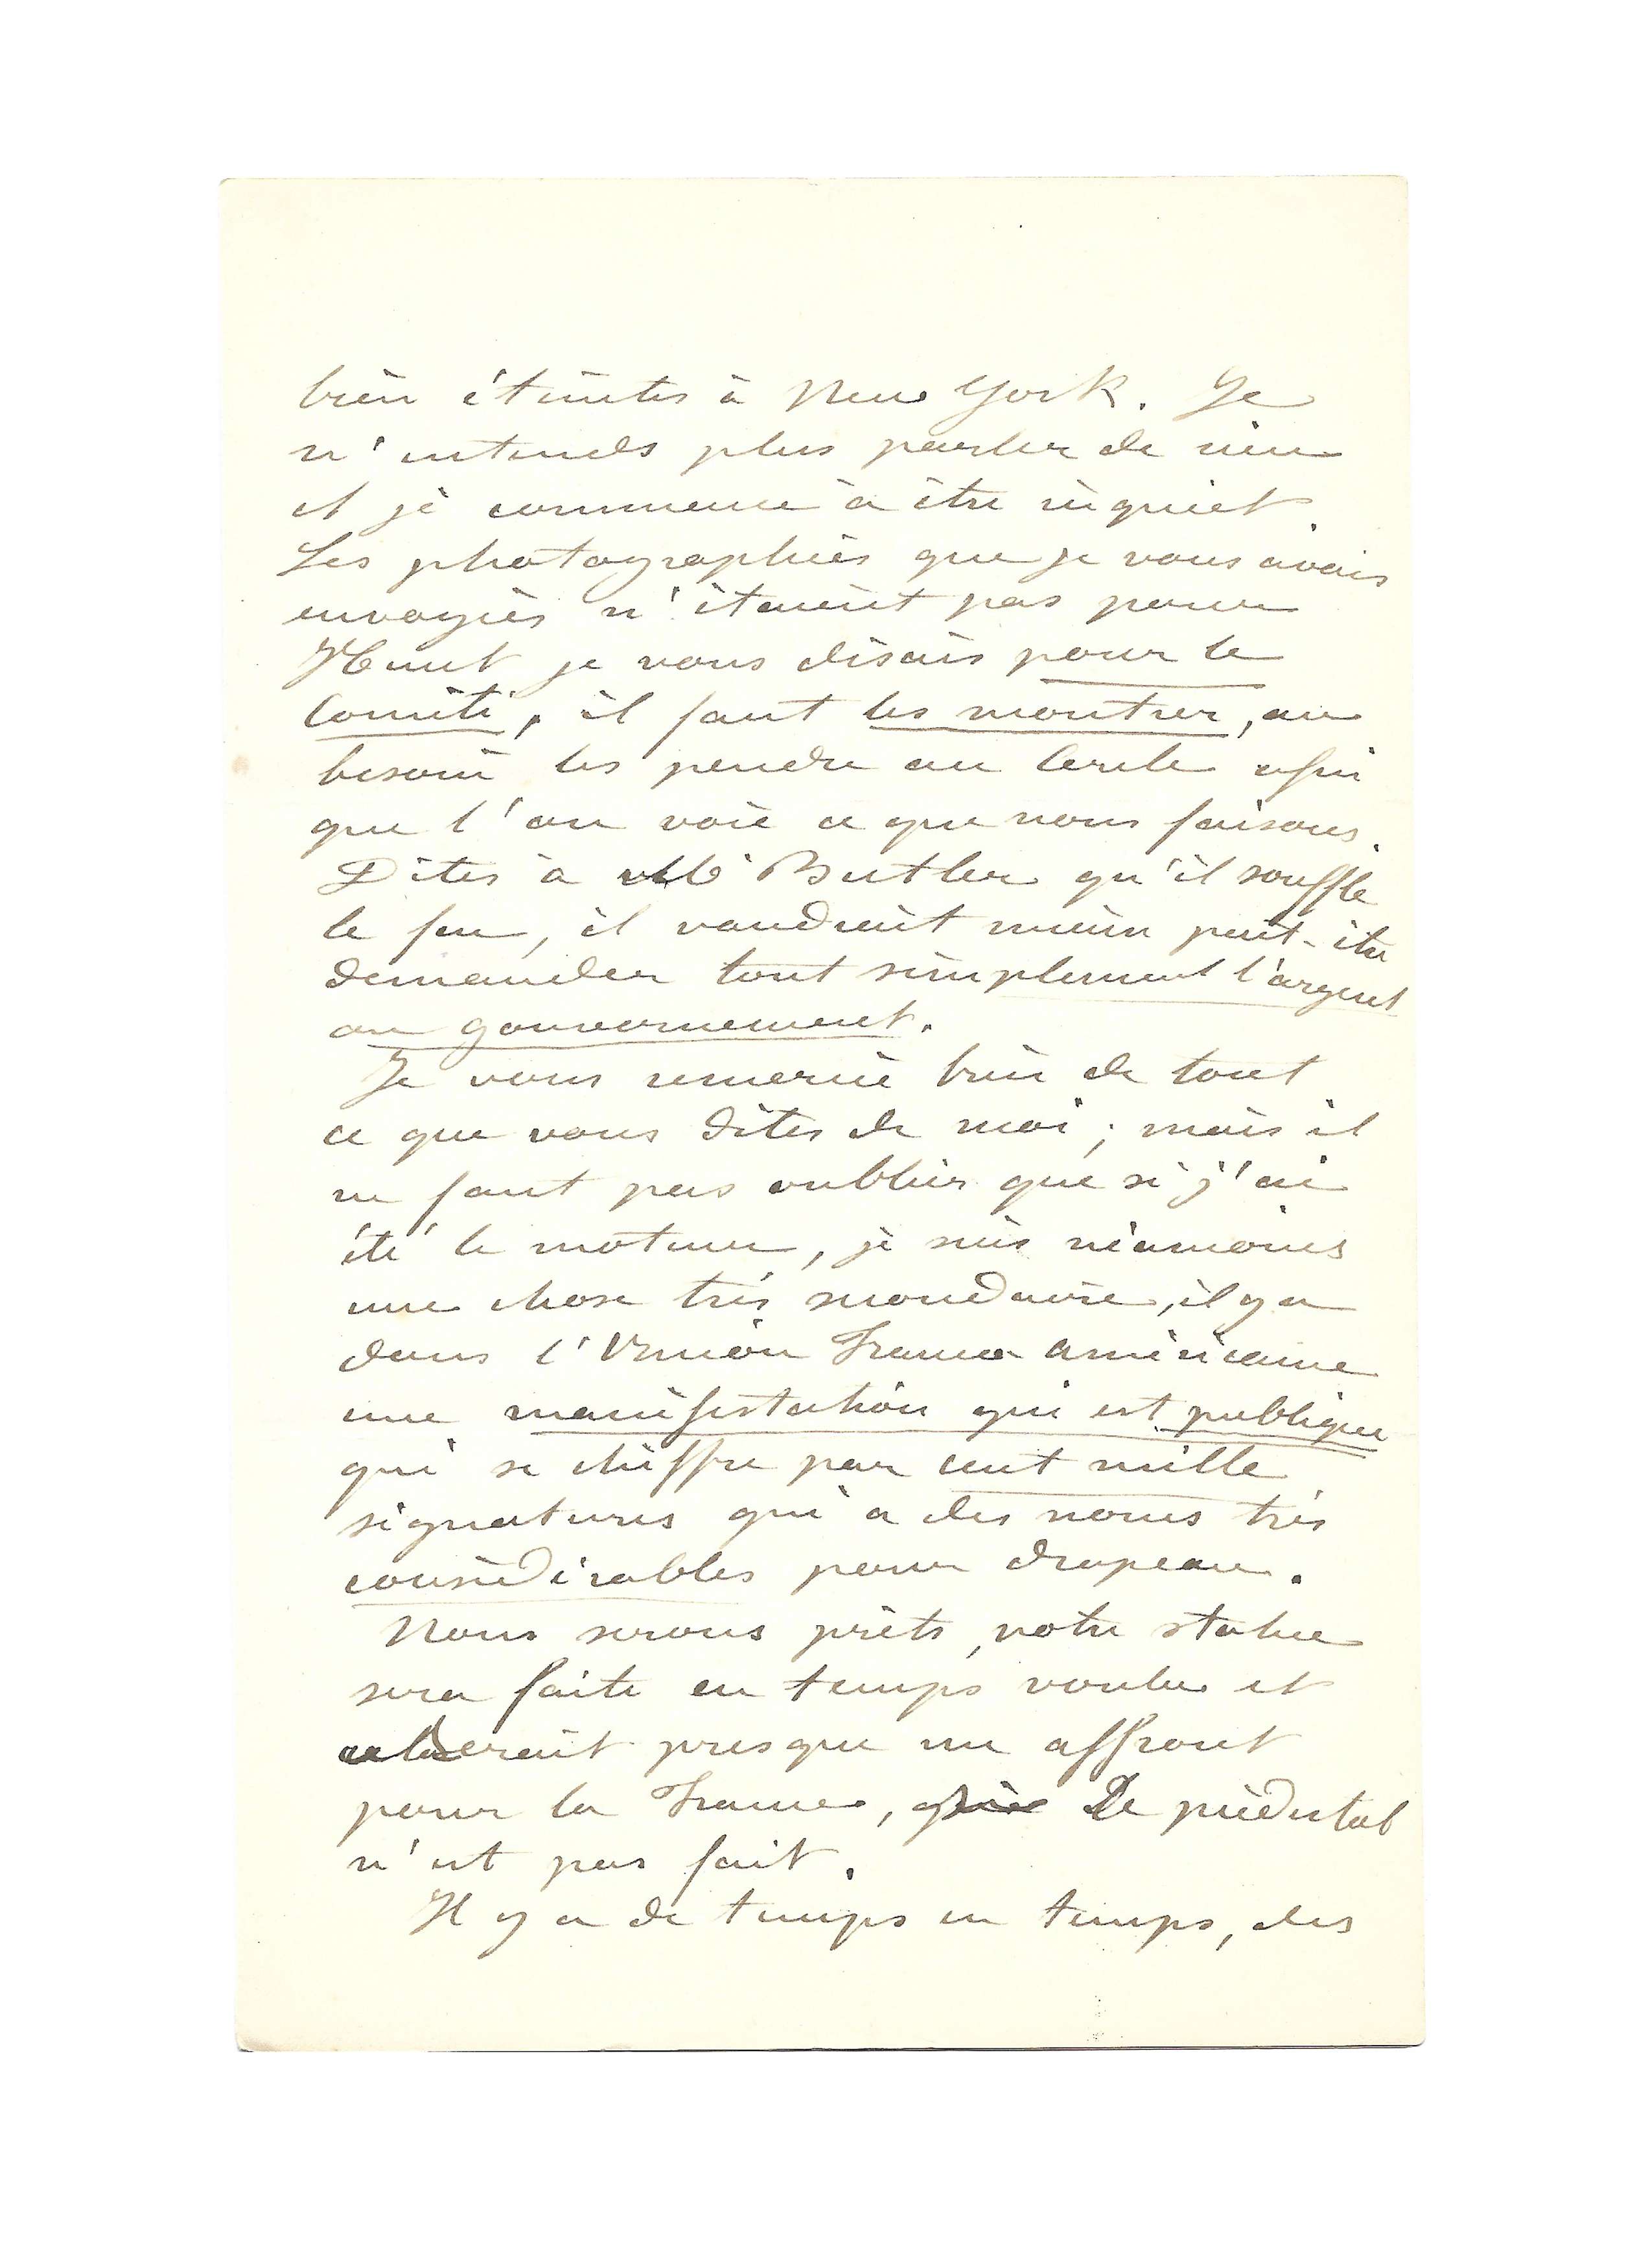 bien éteintes à New York. Je
n'entends plus parler de rien
et je commence à être inquiet.
Les photographies que je vous avais
envoyées n'étaient pas pour
Hunt je vous disais pour le
Comité, il faut les montrer, au
besoin les pendre au Cercle afin
que l'on voie ce que nous faisons.
Dites à Mr Butler qu'il souffle
le feu, il vaudrait mieux peut-être
demander tout simplement l'argent
au gouvernement.
Je vous remercie bien de tout
ce que vous dites de moi ; mais il
ne faut pas oublier que si j'ai
été le moteur, je suis néamoins
une chose très secondaire, il y a
dans l'Union Franco américaine
une manifestation qui est publique
qui se chiffre par cent mille
signatures qui a des noms très
considérables pour drapeau.
Nous serons prêts, votre statue
sera faite en temps voulu et
serait presque un affront
pour la France, Le piédestal
n'est pas fait.
Il y a de temps en temps, des